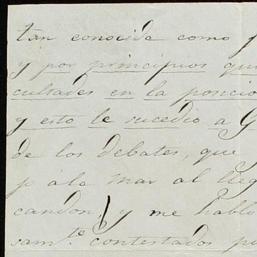 tan conocida como
y por principios qui
cultades en la posicio
y esto le sucedio a G
de los debates, que
p a la mar al lleg
candon, y me hablo
sam.te contestados po